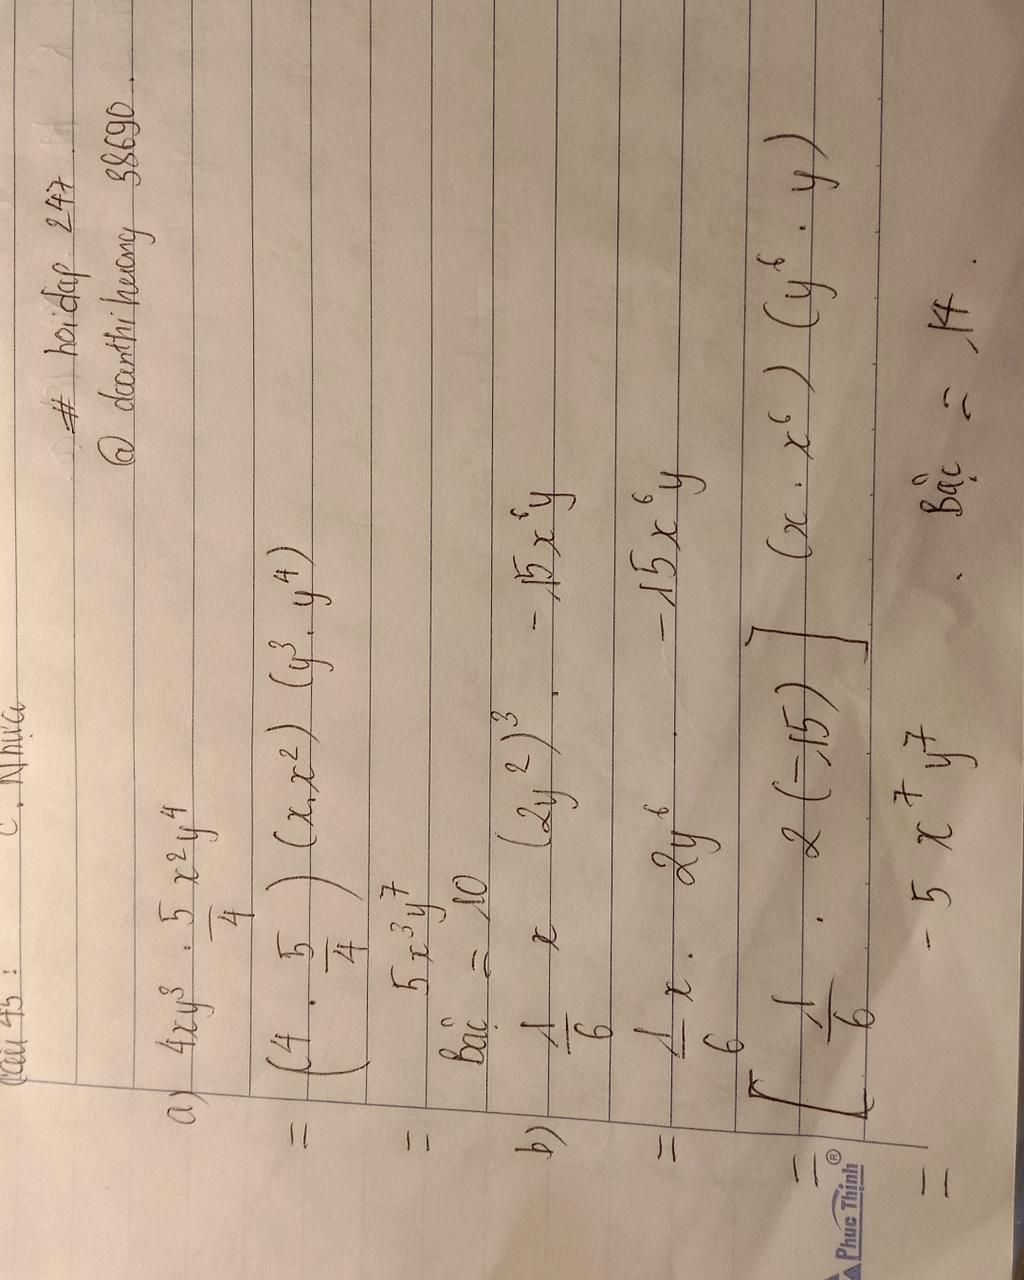 Câu 45: C. Nhựa
# hoidap 247
@ doanthihuong 38690.
a) 4xy³ . 5/4 x²y⁴
= (4 . 5/4) (x.x²) (y³.y⁴)
= 5x³y⁷
Bậc = 10
b) 1/6 x (2y²)³ . -15x⁶y
= 1/6 x . 2y⁶ . -15x⁶y
= [1/6 . 2 (-15)] (x.x⁶) (y⁶.y)
= -5x⁷y⁷ . Bậc = 14.
Phuc Thinh®